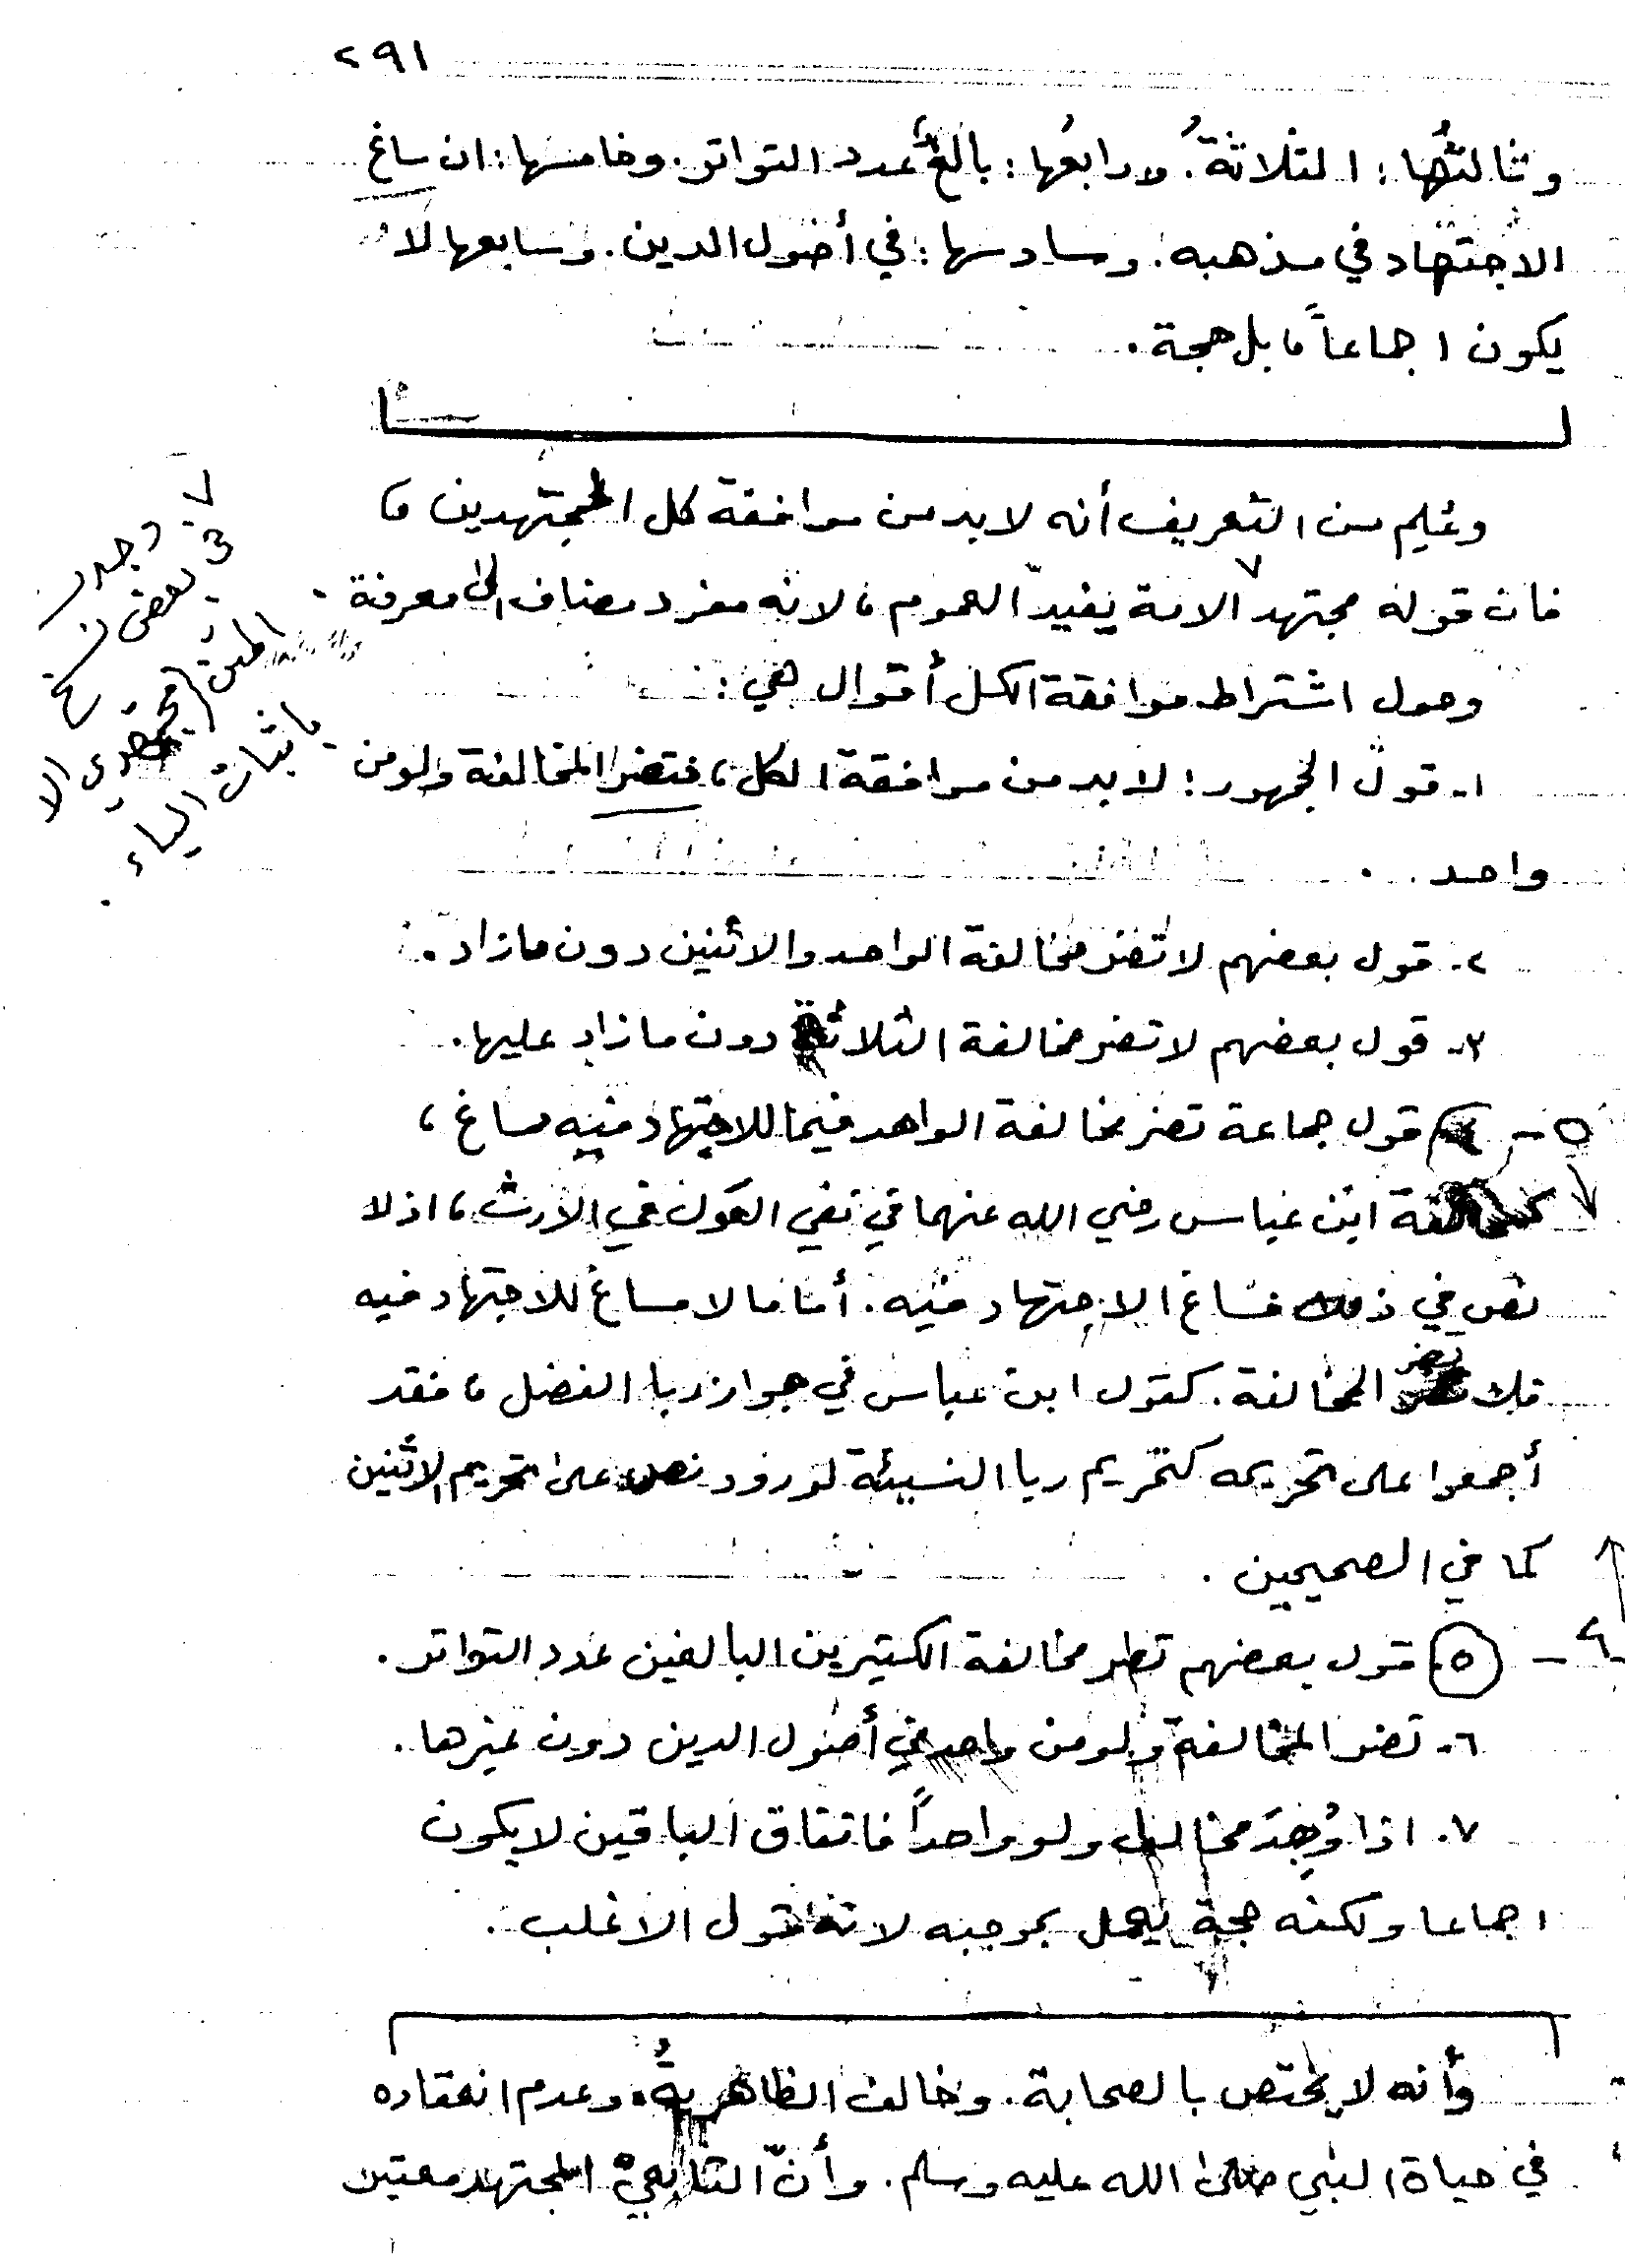 ٢٩١
وثالثُها : الثلاثةُ. ورابعُها : بالغُ عدد التواتر. وخامسها : ان ساغ
الاجتهاد في مذهبه. وسادسها : في أصول الدين. وسابعها لا
يكون اجماعاً، بل حجة.
وعُلِم من التعريف أنه لابد من موافقة كل المجتهدين،
فان قوله مجتهد ٧ الامة يفيد العموم، لانه مفرد مضاف الى معرفة.
وحول اشتراط موافقة الكل أقوال هي :
١- قول الجمهور : لابد من موافقة الكل، فتضر المخالفة ولو من
واحد.
٢- قول بعضهم لا تضر مخالفة الواحد والاثنين دون مازاد.
٣- قول بعضهم لا تضر مخالفة الثلاثة دون مازاد عليها.
٥- قول جماعة تضر مخالفة الواحد فيما للاجتهاد فيه مساغ،
كمخالفة ابن عباس رضي الله عنهما في نفي العَول في الارث، اذ لا
نص في ذلك فساغ الاجتهاد فيه. أما ما لا مساغ للاجتهاد فيه
فلا تضر المخالفة. كقول ابن عباس في جواز ربا الفضل، فقد
أجمعوا على تحريمه كتحريم ربا النسيئة لورود نص على تحريم الاثنين
كما في الصحيحين.
٤- (٥) قول بعضهم تضر مخالفة الكثيرين البالغين عدد التواتر.
٦- تضر المخالفة ولو من واحد في أصول الدين دون غيرها.
٧. اذا وُجِدَ مخالف ولو واحداً فاتفاق الباقين لايكون
اجماعا ولكنه حجة يعمل بموجبه لانه قول الاغلب.
وأنه لا يختص بالصحابة. وخالف الظاهريةُ. وعدم انعقاده
في حياة النبي صلى الله عليه وسلم. وأنّ التابعيَّ المجتهد معتبر
٧. وجد
في بعض نسخ
المتن (مجتهدي الا
باثبات الياء.